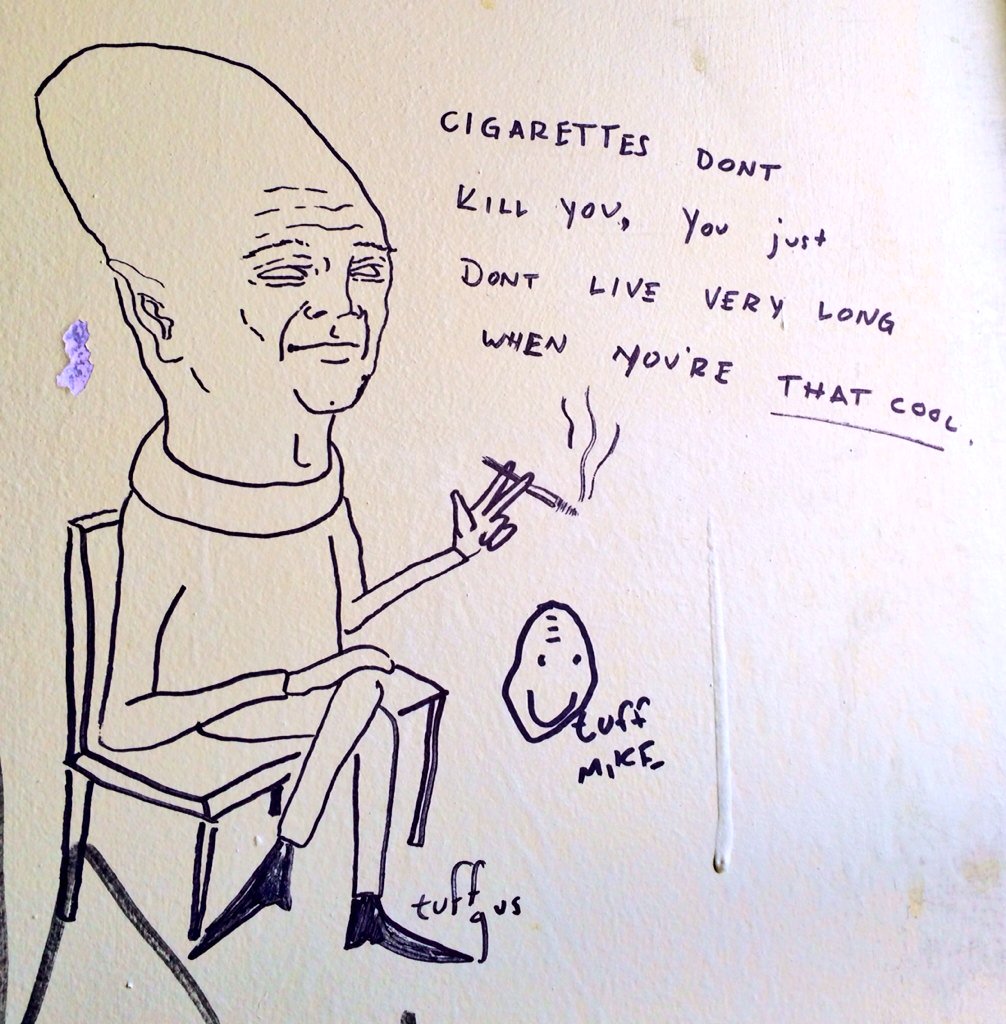 CIGARETTES DONT
KILL YOU, YOU just
DONT LIVE VERY LONG
WHEN YOU'RE THAT COOL.
tuff
MIKE
tuff
gus